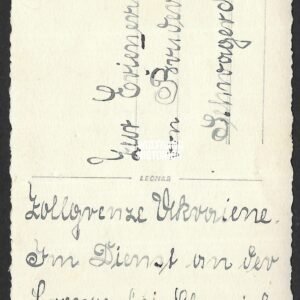 Zur Erinneru
von Bruder
Schwager
LEONAR
Zollgrenze Ukraiene.
Im Dienst an der